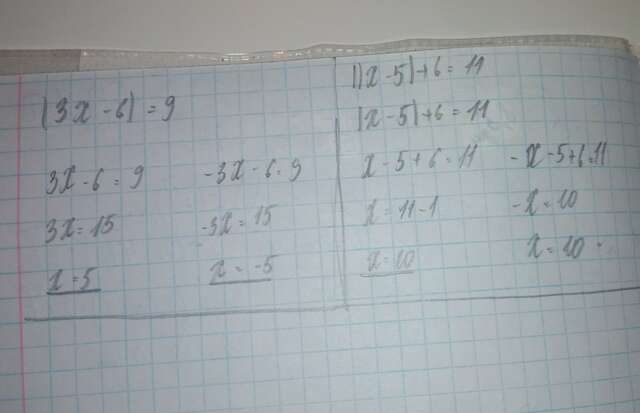 |3x - 6| = 9
3x - 6 = 9 -3x - 6 = 9
3x = 15 -3x = 15
x = 5 x = -5
||x - 5| + 6 = 11
|x - 5| + 6 = 11
x - 5 + 6 = 11 -x - 5 + 6 = 11
x = 11 - 1 -x = 10
x = 10 x = 10